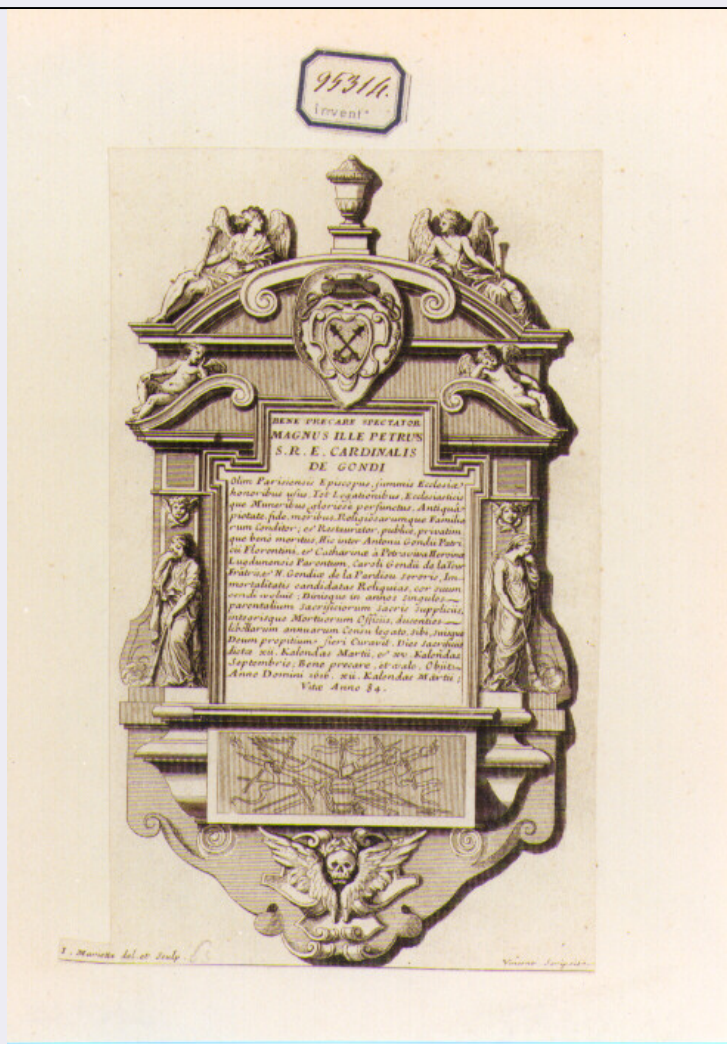 95314.
Invent°
BENE PRECARE SPECTATOR
MAGNUS ILLE PETRUS
S. R. E. CARDINALIS
DE GONDI
Olim Parisiensis Episcopus, summis Ecclesiæ
honoribus usus, Tot Legationibus, Ecclesiasticis
que Muneribus gloriose perfunctus, Antiquâ
pietate, fide, moribus, Religiosarumque Familia
rum Conditor; et Restaurator, publicè, privatim
que benè meritus, Hic inter Antonii Gondii Patri
cii Florentini, et Catharinæ à Petraviva Heroinæ
Lugdunensis Parentum, Caroli Gondii de la Tour
Fratris et N. Gondiæ de la Pardieu Sororis, Im-
mortalitatis candidatas Reliquias, cor suum
condi voluit; Binisque in annos singulos
parentalium Sacrificiorum sacris Supplicüs,
integrisque Mortuorum Officüs, ducentis
libellarum annuarum Censu legato, sibi, suisque
Deum propitium fieri Curavit. Dies Sacrificüs
dictæ xii. Kalendas Martii, et xv. Kalendas
Septembris; Bene precare, et vale. Obiit
Anno Domini 1616. xii. Kalendas Martii;
Vitæ Anno 84.
I. Mariette del. et Sculp.